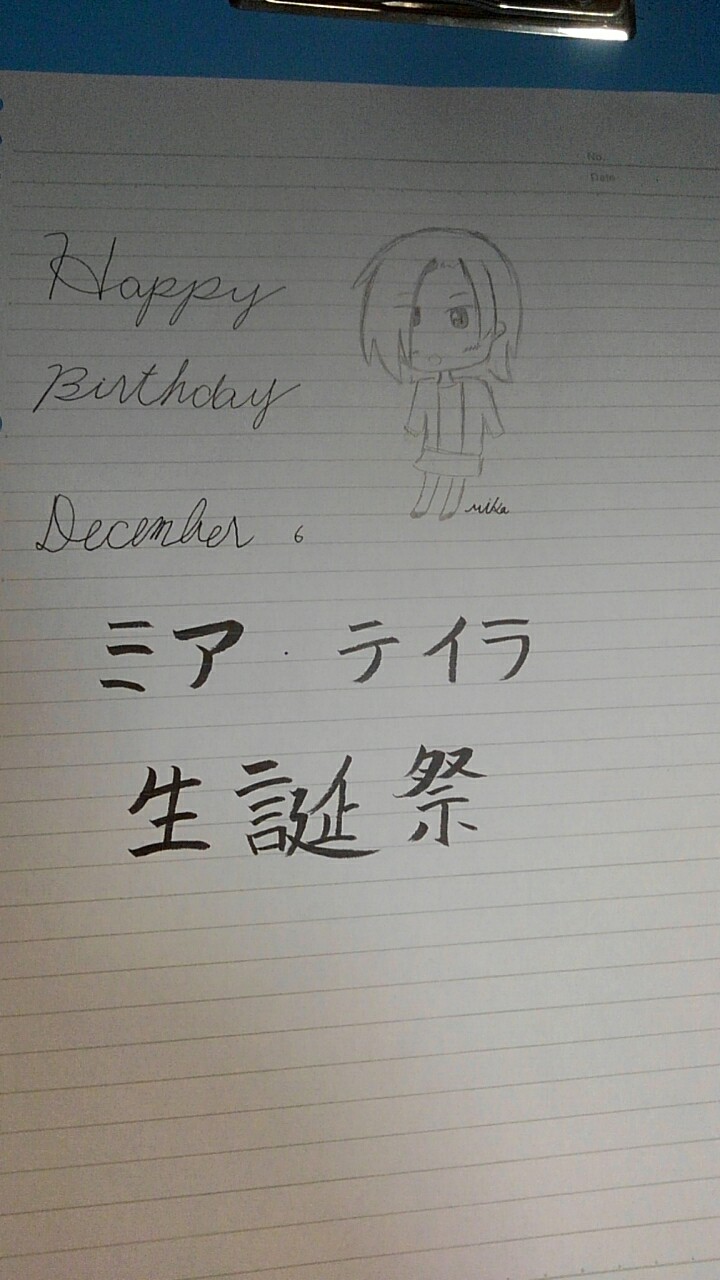 No.
Date
Happy
Birthday
mika
December 6
ミア・テイラ
生誕祭